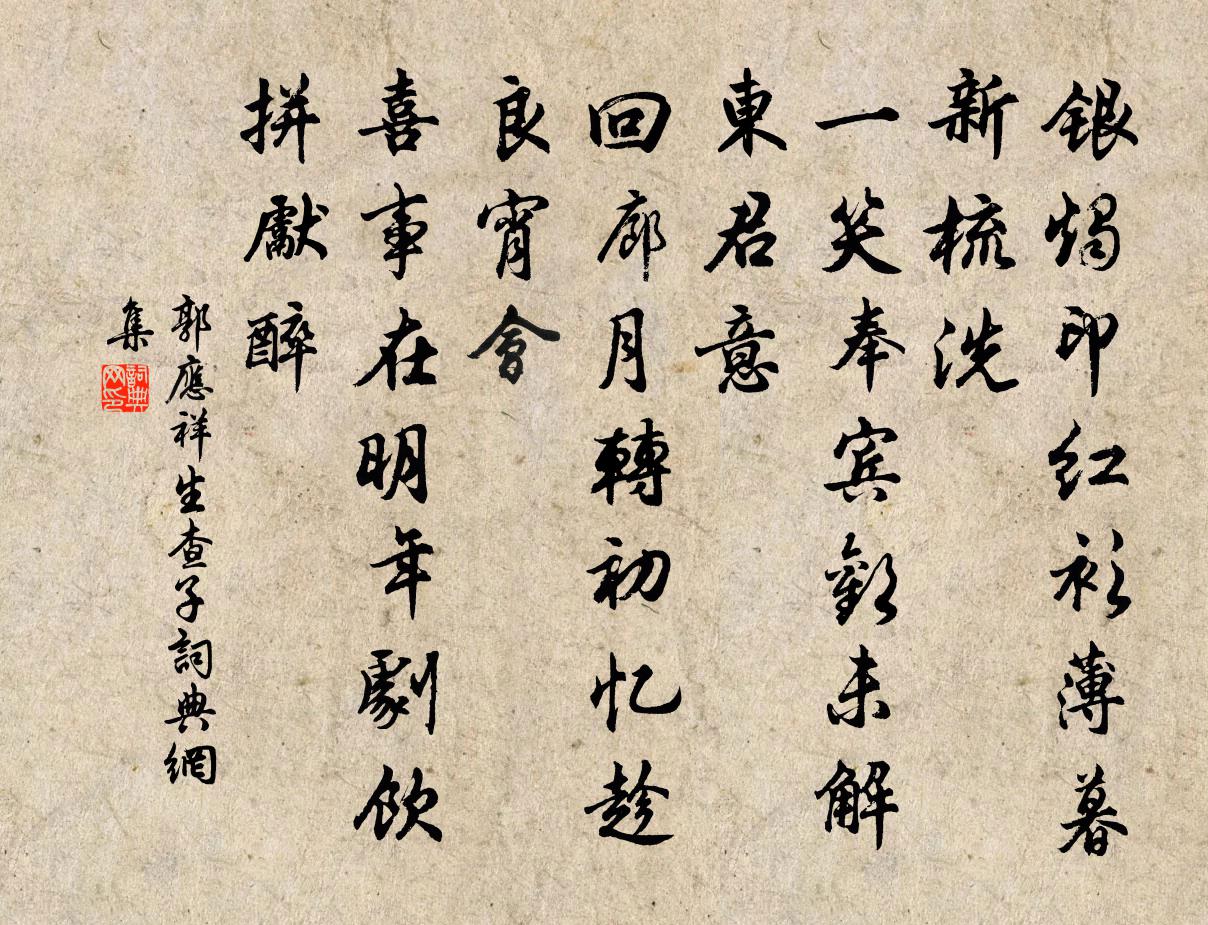 銀燭印红衫薄暮
新梳洗
一笑奉宾歡未解
東君意
回廊月轉初忆趁
良宵會
喜事在明年劇飲
拼獻醉
郭應祥生查子詞典網
集
詞典
网印